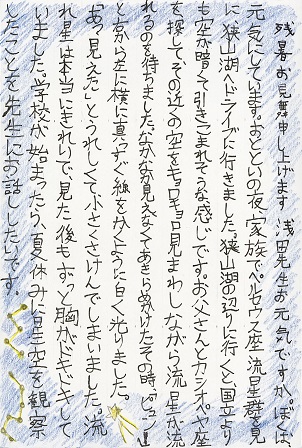 残暑お見舞申し上げます 浅田先生お元気ですか。ぼくは
元気にしています。おとといの夜、家族でペルセウス座流星群を見
に狭山湖へドライブに行きました。狭山湖の辺りに行くと、国立より
も空が暗くて引きこまれそうな感じです。お父さんとカシオペヤ座
を探して、その近くの空をキョロキョロ見まわしながら流星が流
れるのを待ちました。なかなか見えなくてあきらめかけたその時、「ピューン」
と右から左に横に真っすぐ線をかくように白く光りました。
「あっ見えた」とうれしくて小さくさけんでしまいました。流
れ星は本当にきれいで、見た後もずっと胸がドキドキして
いました。学校が始まったら、夏休みに星空を観察
したことを先生にお話ししたいです。